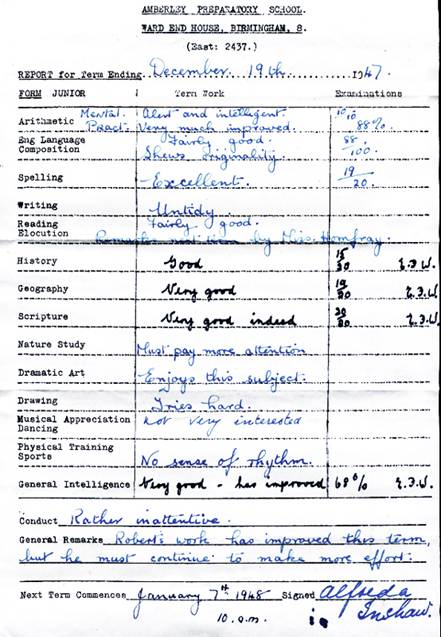 AMBERLEY PREPARATORY SCHOOL.
WARD END HOUSE, BIRMINGHAM, 8.
(East: 2437.)
REPORT for Term Ending December 19th 1947.
FORM JUNIOR Term Work Examinations
Arithmetic Mental. Alert and intelligent. 10/10
Pract. Very much improved. 88%
Eng Language Fairly good. 88.
Composition Shews originality. 100.
Spelling Excellent. 19/20.
Writing Untidy.
Reading Fairly good.
Elocution Remarks next term by Miss Homfray.
History Good 15/20 E.J.W.
Geography Very good 19/20 E.J.W.
Scripture Very good indeed 20/20 E.J.W.
Nature Study Must pay more attention
Dramatic Art Enjoys this subject.
Drawing Tries hard.
Musical Appreciation not very interested
Dancing
Physical Training
Sports No sense of rhythm.
General Intelligence Very good - has improved 68% E.J.W.
Conduct Rather inattentive.
General Remarks Robert's work has improved this term,
but he must continue to make more effort.
Next Term Commences January 7th 1948 Signed Alfreda
10.a.m. Inshaw.